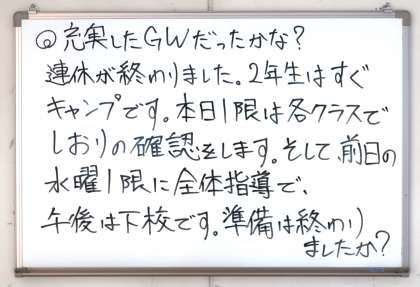 ◎充実したGWだったかな?
連休が終わりました。2年生はすぐ
キャンプです。本日1限は各クラスで
しおりの確認をします。そして、前日の
水曜1限に全体指導で、
午後は下校です。準備は終わり
ましたか?